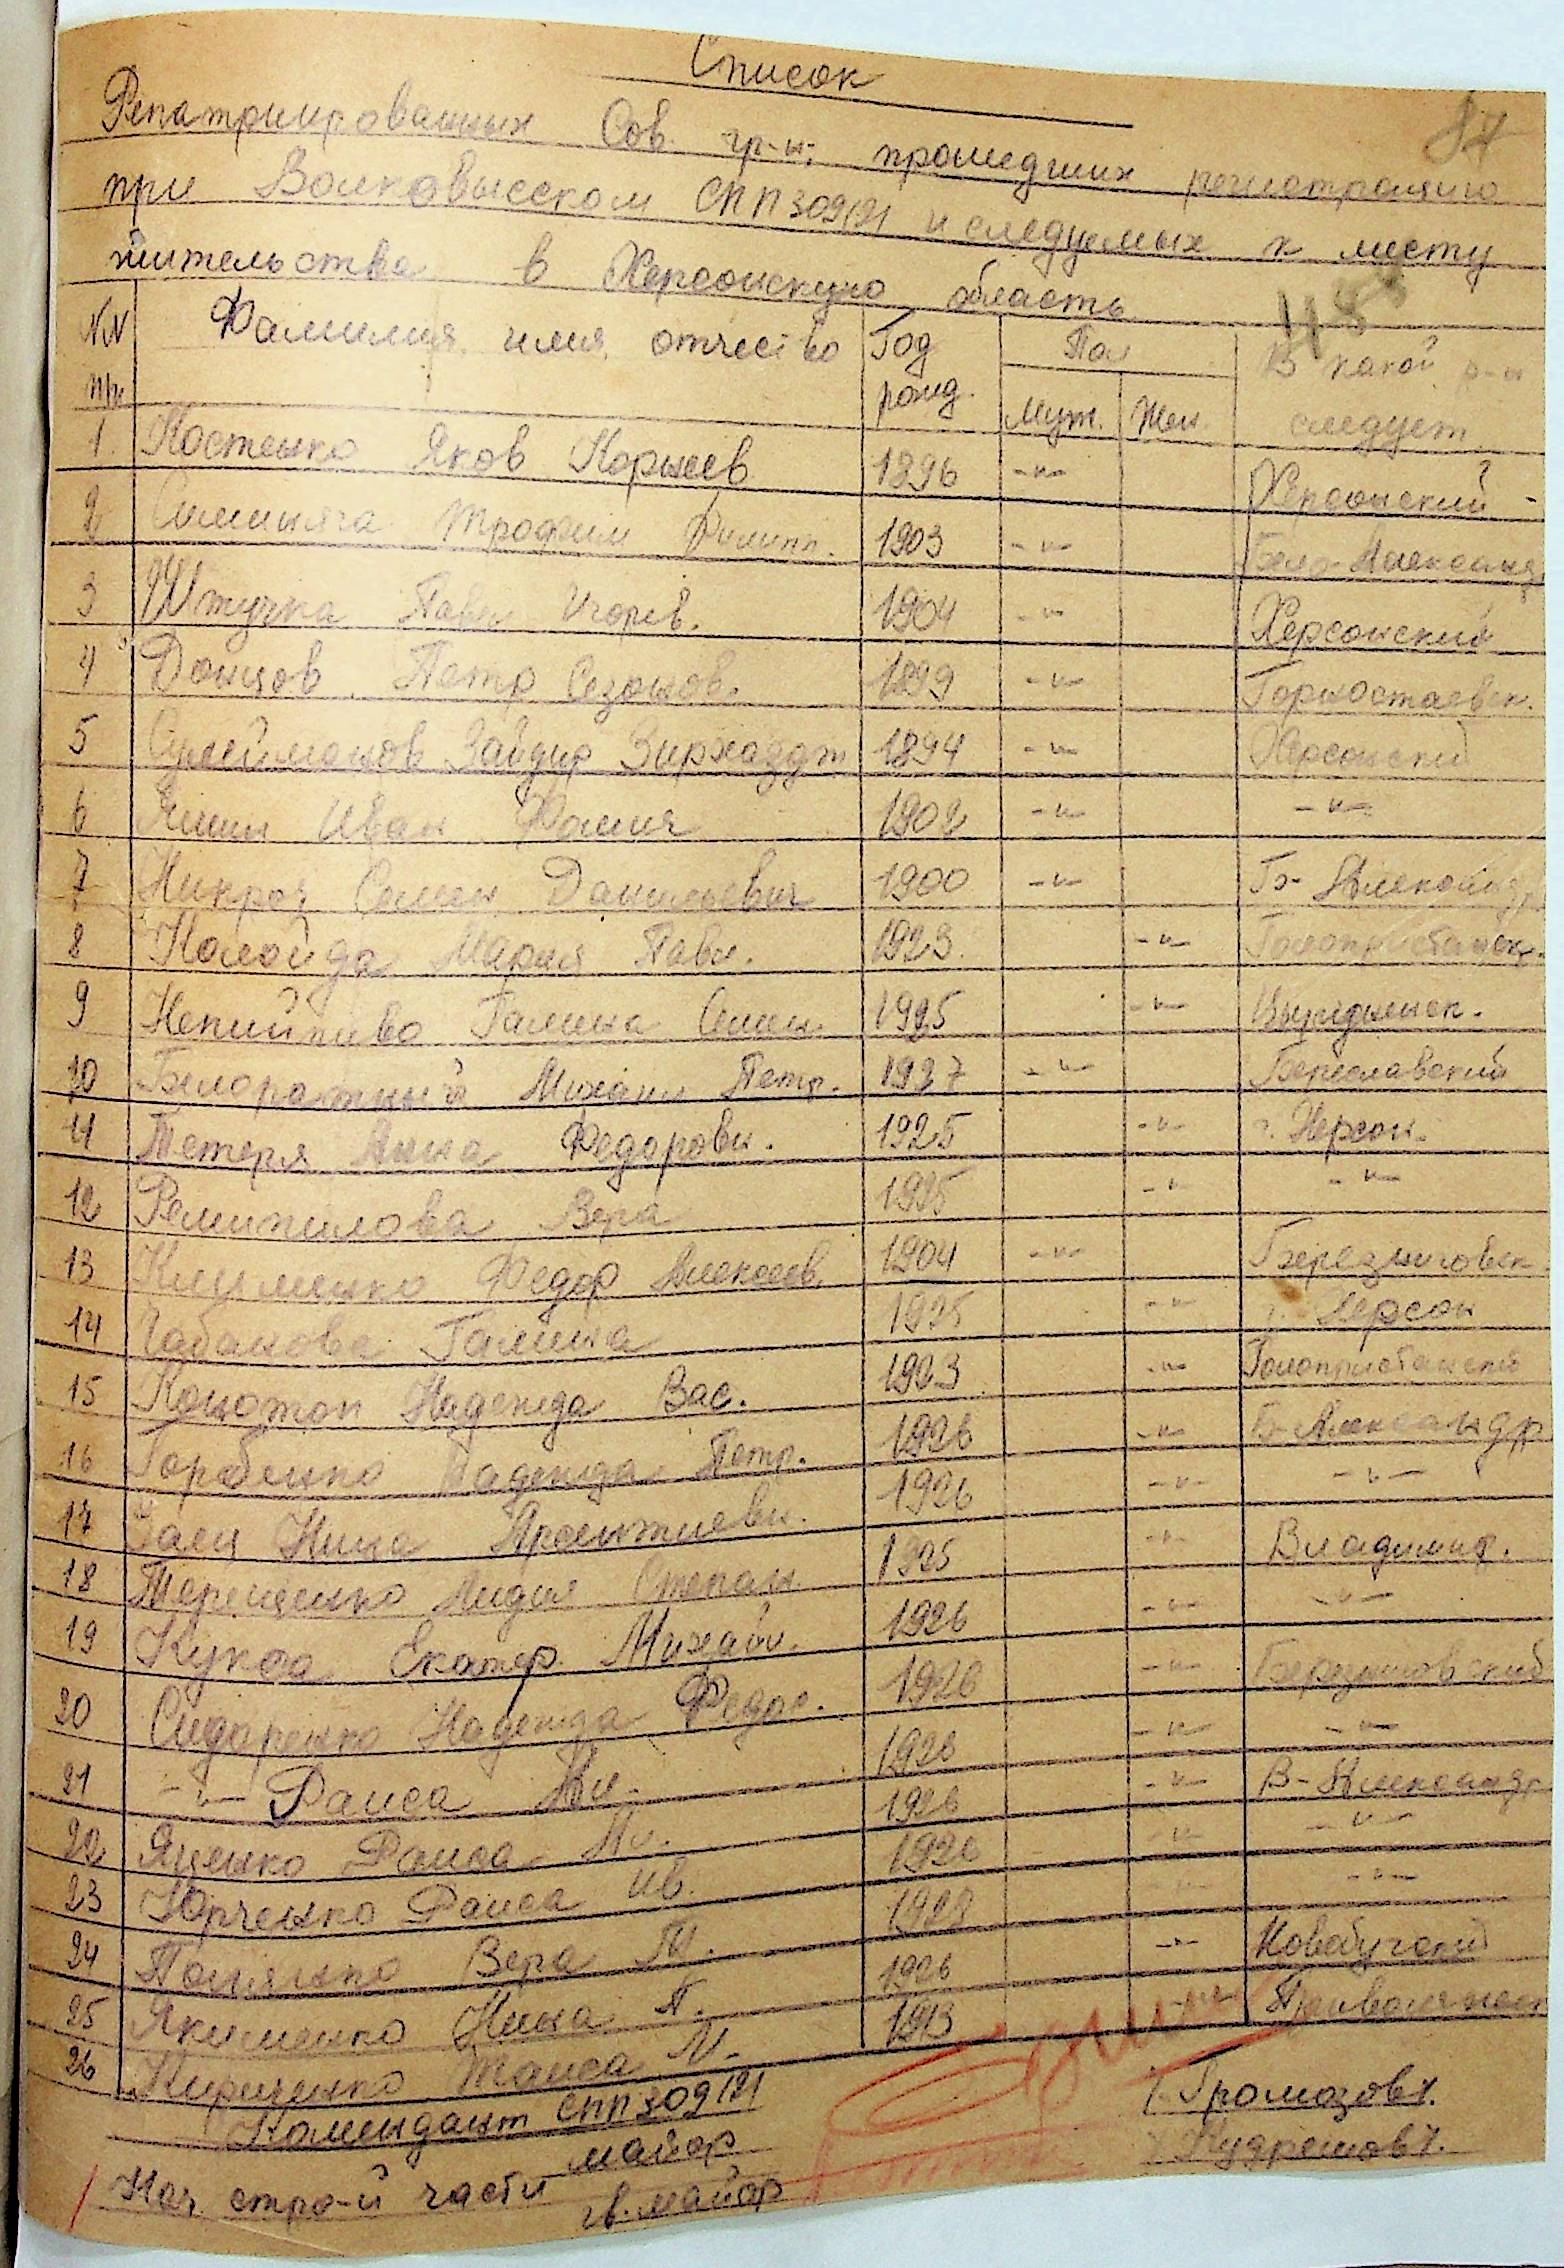 Список
84
Репатриированных Сов. гр-н, прошедших регистрацию
при Волковысском СПП 309/21 и следуемых к месту
жительства в Херсонскую область
NN п/п Фамилия, имя, отчество Год рожд. Пол Муж. Жен. В какой р-н следует
1. Костенко Яков Корнеев 1896 -"- Херсонский
2 Трофим Филипп. 1903 -"- Бело-Александ
3 Штучка Павел Игорев. 1904 -"- Херсонский
4 Донцов Петр Созонов. 1899 -"- Горностаевск.
5 Сулейманов 1894 -"- Херсонский
6 Яшин Иван Фомич 1902 -"- -"-
7 Семен Данильевич 1900 -"- Б-Александр
8 Коломйда Мария Павл. 1923. -"- Голопристанск.
9 Непийпиво Галина Семен. 1925 -"-
10 Белоратный Михаил Петр. 1927 -"- Бериславский
11 Тетеря Анна Федоровн. 1925 -"- г. Херсон.
12 Вера 1925 -"- -"-
13 Клименко Федор Алексеев. 1904 -"- Березниговск.
14 Чабанова Галина 1925 -"- Херсон
15 Коцотоп Надежда Вас. 1923 -"- Голопристанский
16 Горбенко Надежда Петр. 1926 -"- Б-Александр
17 Заец Нина Арсентиевн. 1926 -"- -"-
18 Терещенко Лидия Степан. 1925 -"- Владимир.
19 Кукса Екатер. Михайл. 1926 -"- -"-
20 Сидоренко Надежда Федос. 1926 -"- Березниговский
21 -"- Раиса 1926 -"- -"-
22 Яценко Раиса 1926 -"- В-Александр
23 Юрченко Раиса Ив. 1926 -"- -"-
24 Вера 1928 -"- -"-
25 Якименко Нина П. 1926 -"- Новобугский
26 Кириченко Таиса М. 1913 -"-
Комендант СПП 309/21
майор /Громозов/.
Нач. стро-й части
гв. майор /Кудряшов/.